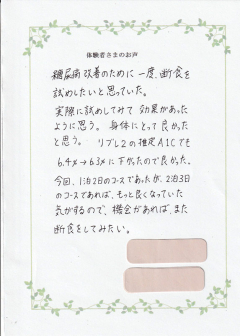 体験者さまのお声
糖尿病改善のために一度、断食を
試めしたいと思っていた。
実際に試めしてみて効果があった
ように思う。身体にとって良かった
と思う。リブレ2の推定A1Cでも
6.4%→6.3%に下がったので良かった。
今回、1泊2日のコースであったが、2泊3日
のコースであれば、もっと良くなっていた
気がするので、機会があれば、また
断食をしてみたい。